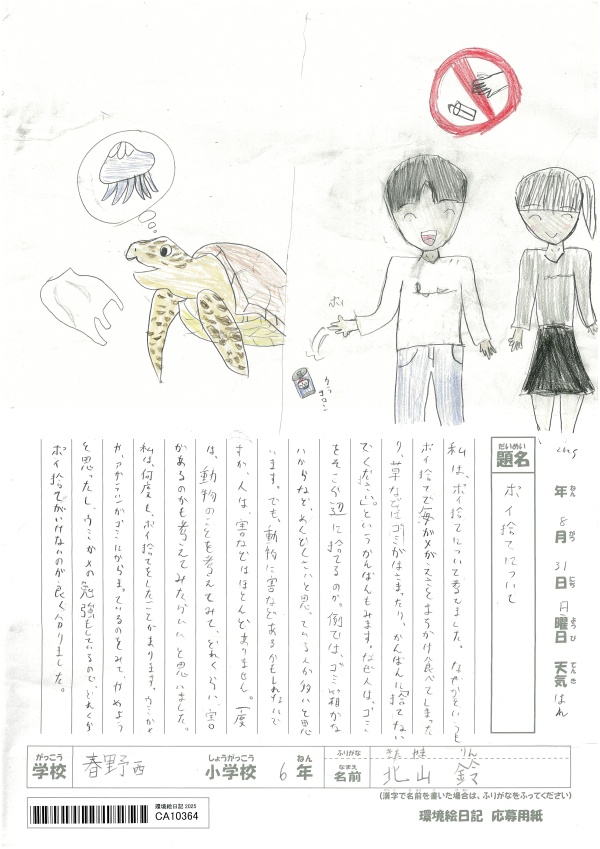 ポイ
カラ
コロン
だいめい
題名
ポイ捨てについて
年 8月 31日 月曜日 天気 はれ
ねん がつ にち ようび てんき
私は、ポイ捨てについて考えました。なぜかというと
ポイ捨てで海がめがえさとまちがけ食べてしまった
り、草などにゴミがはさまったり、かんばんに捨てない
でください。というかんばんもみます。なぜ人は、ゴミ
をそこら辺に捨てるのか。例では、ゴミ箱がな
いからなど、めんどくさいと思っている人が多いと思
います。でも、動物に害などあるかもしれないで
すが、人は、害などはほとんどありません。一度
は、動物のことを考えてみて、どれくらい害
があるのかも考えてみたらいいと思いました。
私は、何度も、ポイ捨てをしたことがあります。ウミガメ
が、ゴミにからまっているのをみて、やめよう
と思ったし、ウミガメの勉強もしているので、どれくら
ポイ捨てがいけないのか良く分かりました。
がっこう しょうがっこう ねん ふりがな きた やま りん
学校 春野西 小学校 6年 なまえ 名前 北山 鈴
(漢字で名前を書いた場合は、ふりがなをふってください)
環境絵日記 2025
CA10364
環境絵日記 応募用紙